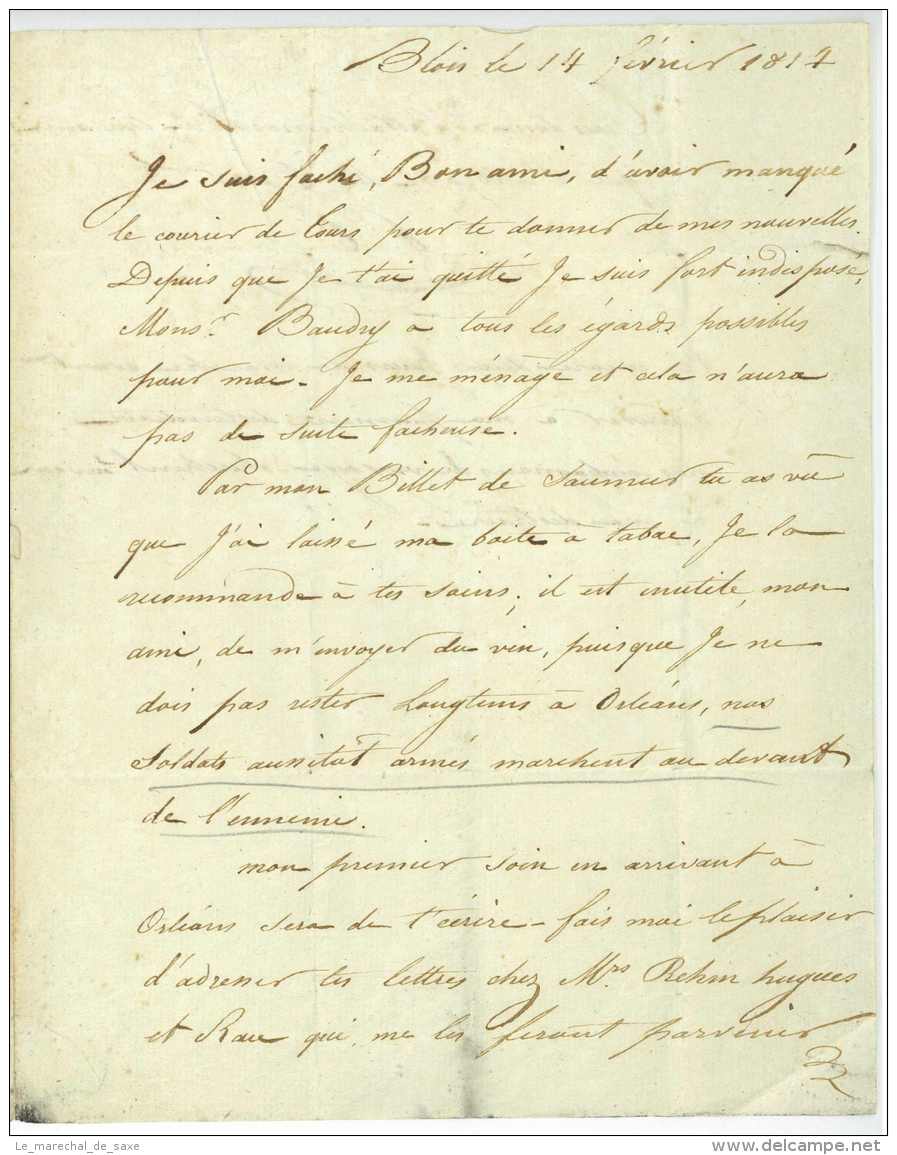 Blois le 14 février 1814
Je suis faché, Bon ami, d'avoir manqué
le courier de Tours pour te donner de mes nouvelles.
Depuis que Je t'ai quitté Je suis fort indisposé,
Mons.r Baudry a tous les égards possibles
pour moi - Je me ménage et cela n'aura
pas de suite facheuse.
Par mon Billet de Saumur tu as vû
que J'ai laissé ma boite à tabac, Je la
recommande à tes soins; il est inutile, mon
ami, de m'envoyer du vin, puisque Je ne
dois pas rester Longtems à Orléans, nos
Soldats aussitôt armés marchent au devant
de l'ennemi.
mon premier soin en arrivant à
Orléans sera de t'écrire - fais moi le plaisir
d'adresser tes lettres chez Mrs. Rehm hugues
et Rau qui me les feront parvenir
Le_marechal_de_saxe
delcampe.net